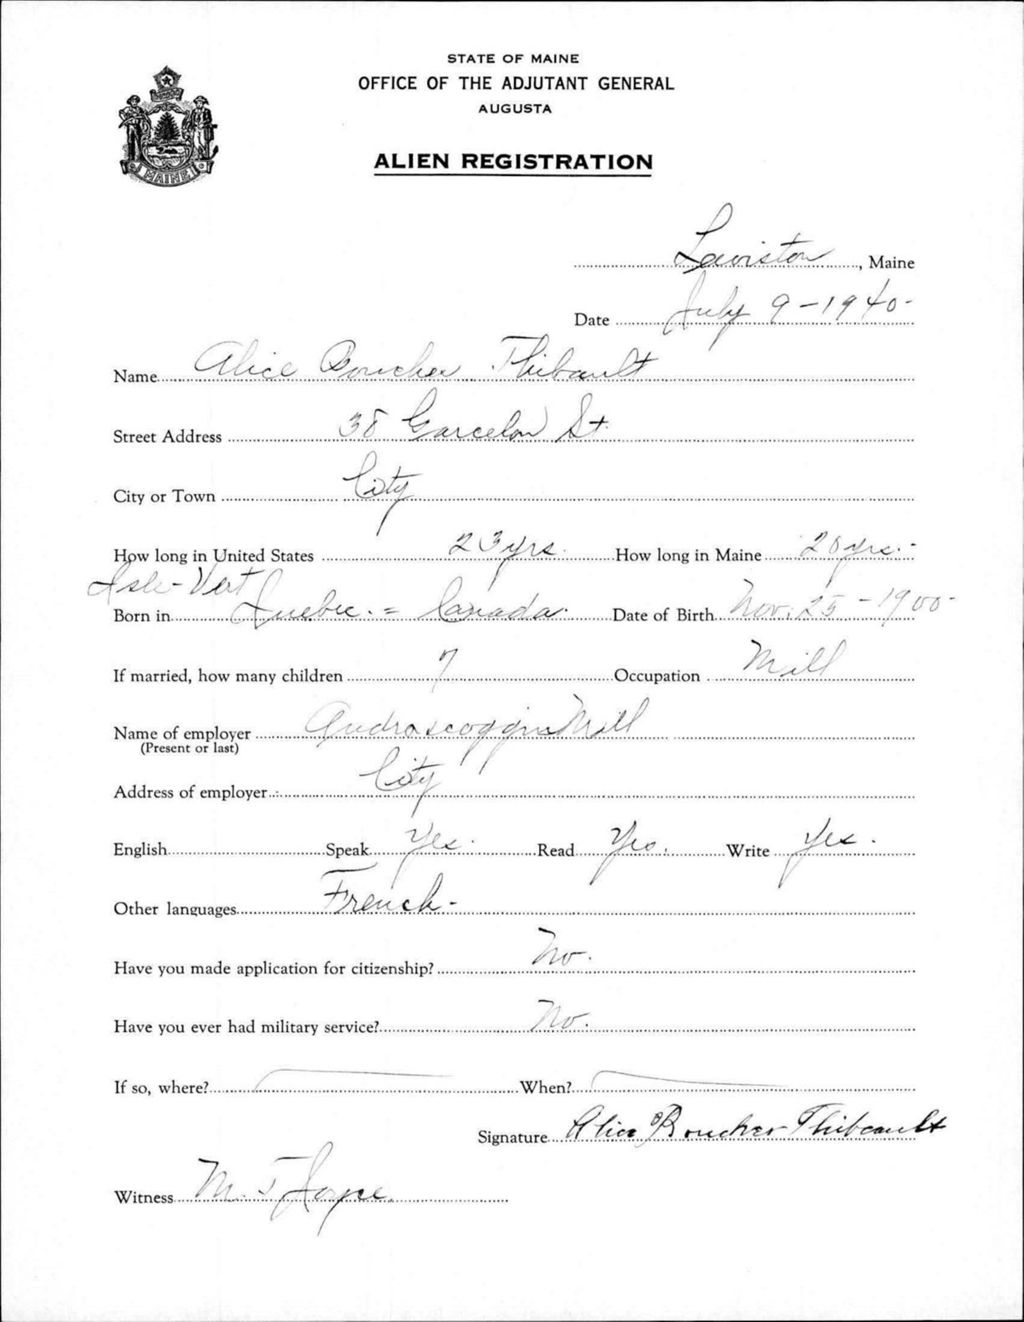 STATE OF MAINE
OFFICE OF THE ADJUTANT GENERAL
AUGUSTA
ALIEN REGISTRATION
MAINE
Lewiston, Maine
Date July 9-1940-
Name Alice Boucher Thibault
Street Address 38 Garcelon St.
City or Town City
How long in United States 23 yrs. How long in Maine 20 yrs.-
Isle-Vert
Born in Quebec.= Canada. Date of Birth Nov. 25-1900-
If married, how many children 7 Occupation Mill
Name of employer Androscoggin Mill
(Present or last)
Address of employer City
English Speak Yes. Read Yes. Write Yes.
Other languages French-
Have you made application for citizenship? No.
Have you ever had military service? No.
If so, where? When?
Signature Alice Boucher Thibault
Witness M. T. Joyce